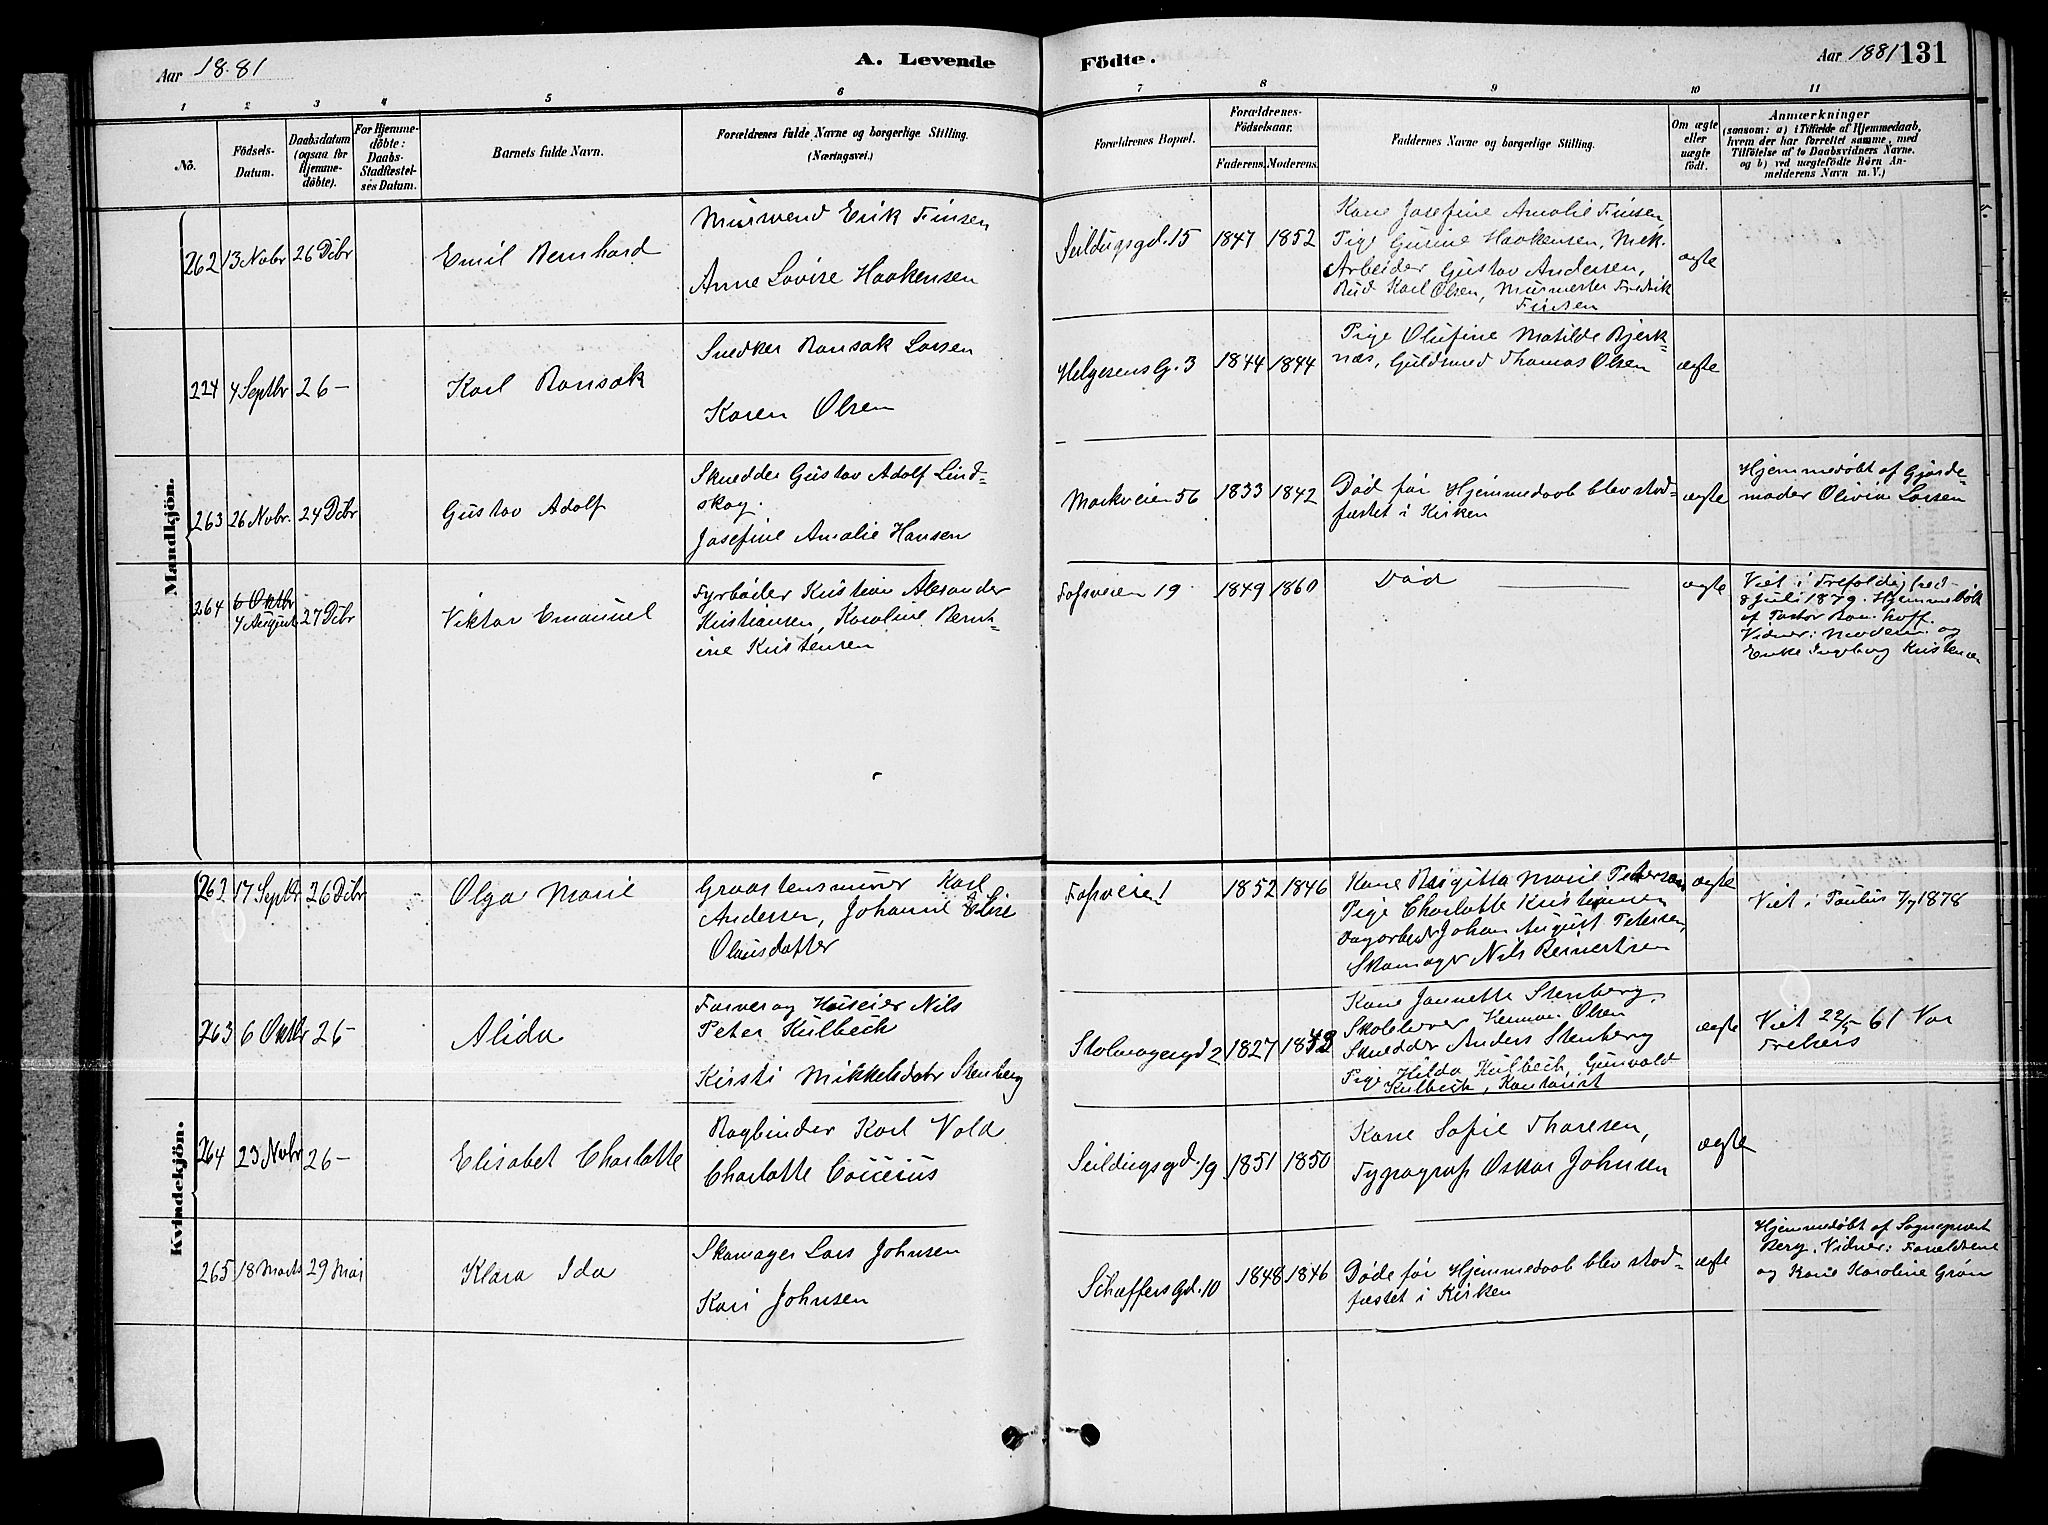 Aar 1881
A. Levende
Födte.
Aar 1881
131
1
2
3
4
5
6
7
8
9
10
11
No.
Födsels-
Datum.
Daabsdatum
(ogsaa for
Hjemme-
döbte).
For Hjemme-
döbte:
Daabs-
Stadfæstel-
ses Datum.
Barnets fulde Navn.
Forældrenes fulde Navne og borgerlige Stilling.
(Næringsvei.)
Forældrenes Bopæl.
Forældrenes-
Födselsaar.
Faderens.
Moderens.
Faddernes Navne og borgerlige Stilling.
Om ægte
eller
uægte
födt.
Anmærkninger
(saasom: a) i Tilfælde af Hjemmedaab,
hvem der har forrettet samme, med
Tilföielse af to Daabsvidners Navne.
og b) ved uægtefödte Börn An-
melderens Navn m. V.)
Mandkjön.
262 13 Novbr 26 Dcbr
Emil Bernhard
Murrend Erik Finsen
Anne Lovise Haakensen
Seildugsgd. 15
1847 1852
Kone Josefine Amalie Finsen
Pige Gusine Haakensen, Mek.
Arbeider Gustav Andersen,
Bud Karl Olsen, Murmester Fredrik
Finsen
ægte
224 4 Septbr 26 -
Karl Ronsak
Snedker Ronsak Larsen
Karen Olsen
Helgesens G. 3
1844 1844
Pige Olufine Matilde Bjerk-
næs, Guldsmed Thomas Olsen
ægte
263 26 Novbr. 24 Dcbr
Gustav Adolf
Skredder Gustav Adolf Lind-
skog.
Josefine Amalie Hansen
Markveien 56
1833 1842
Död før Hjemmedaab blev stad-
fæstet i Kirken
ægte
Hjemmedøbt af Gjorde-
moder Olivia Larsen
264 6 Oktbr
4 August 27 Dcbr
Viktor Emanuel
Fyrbøder Kristian Alexander
Kristiansen, Karoline Bernt-
ine Kristensen
Fossveien 19
1849 1860
Död
ægte
Viet i Trefoldighed-
8 Juli 1879. Hjemmedøbt
af Pastor
Vidner: Moderen og
Enke Ingeborg Kristensen
Kvindekjön.
262 17 Septbr. 26 Dcbr
Olga Marie
Graastensmurer Karl
Andersen, Johanne Elise
Olausdatter
Fossveien 1
1852 1846
Kone Birgitta Marie Petersen
Pige Charlotte Kristiansen
Dagarbeider Johan August Petersen,
Skomager Nils Reinertsen
ægte
Viet i Paulus 7/7 1878
263 6 Oktbr 26 -
Alida
Farver og Huseier Nils
Peter Kulbeck
Kirsti Mikkelsdatr Stenberg
Stolmagergd 2
1827 1842
Kone Jannette Stenberg,
Skolelærer Herman Olsen
Skredder Anders Stenberg
Pige Hilda Kulbeck, Gunvald
Kulbeck, Kontorist
ægte
Viet 22/5 61 Vor
Frelsers
264 23 Novbr 26 -
Elisabet Charlotte
Bogbinder Karl Vold
Charlotte Coucius
Seildugsgd. 19
1851 1850
Kone Sofie Thoresen,
Typograf Oskar Johnsen
ægte
265 18 Marts 29 Mai
Klara Ida
Skomager Lars Johnsen
Kari Johnsen
Schæffersgd. 10
1848 1846
Døde før Hjemmedaab blev stad-
fæstet i Kirken
ægte
Hjemmedøbt af Sogneprest
Berg. Vidner: Forældrene
og Kone Karoline Grøn